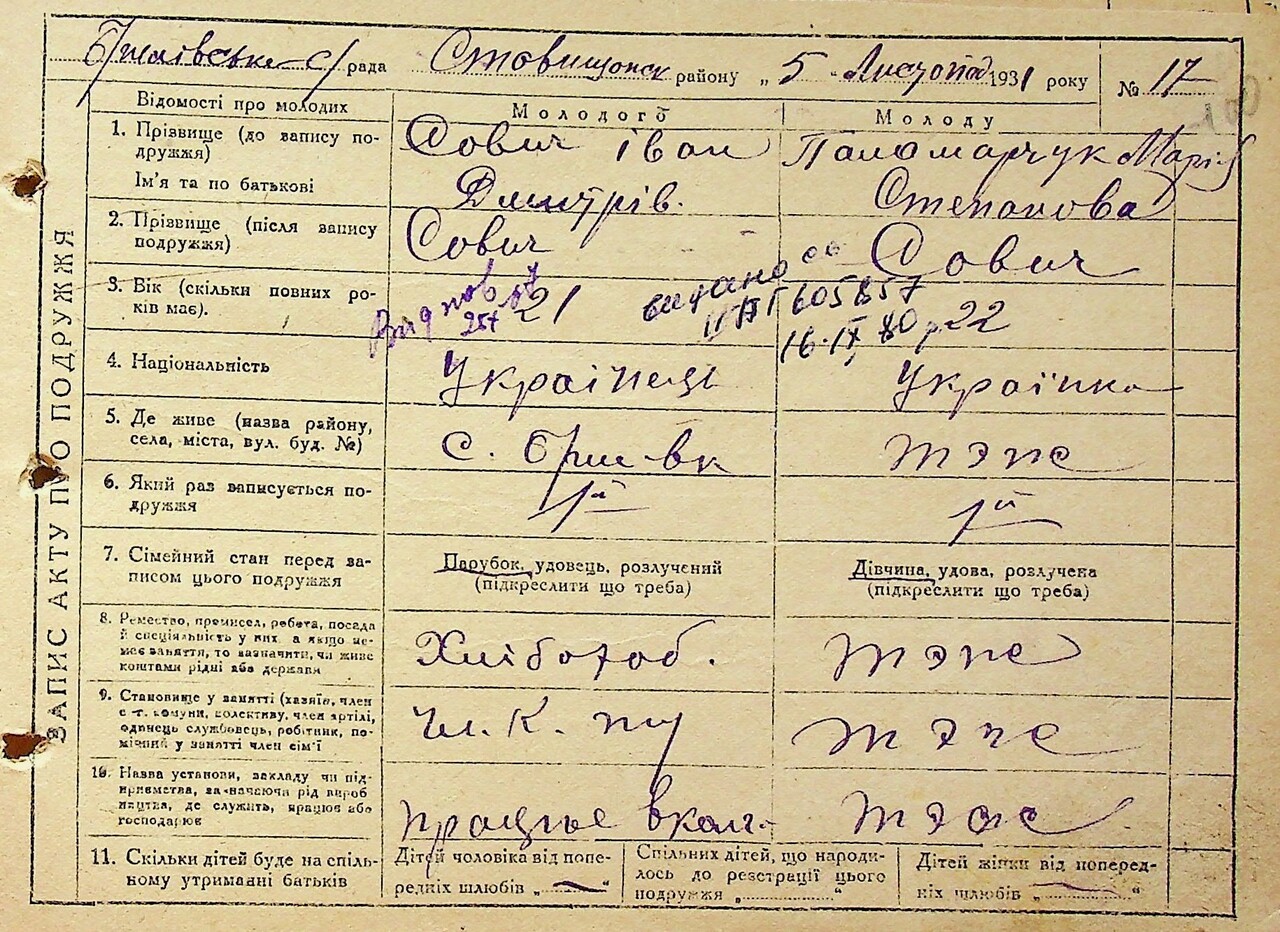 с/рада Ставищанск району „5“ Листопад 1931 року № 17
ЗАПИС АКТУ ПРО ПОДРУЖЖЯ
Відомості про молодих
Молодого
Молоду
1. Прізвище (до запису по-
дружжя)
Ім'я та по батькові
Сович іван
Дмитрів.
Паномарчук Марія
Степанова
2. Прізвище (після запису
подружжя)
Сович
Сович
3. Вік (скільки повних ро-
ків має).
21
видано св
ІІ БК 605857
16.ІХ 80 р
22
4. Національність
Українець
Українка
5. Де живе (назва району,
села, міста, вул. буд. №)
с.
тэпе
6. Який раз записується по-
дружжя
1й
1й
7. Сімейний стан перед за-
писом цього подружжя
Парубок, удовець, розлучений
(підкреслити що треба)
Дівчина, удова, розлучена
(підкреслити що треба)
8. Ремество, промисел, робота, посада
й спеціяльність у них, а якщо не-
має заняття, то зазначити, чи живе
коштами рідні або держави
Хлібороб.
тэпе
9. Становище у занятті (хазяїн, член
с.-г. комуни, колективу, член артілі,
одинець службовець, робітник, по-
мічний у занятті член сім'ї
чл. к.
тэпе
10. Назва установи, закладу чи під-
приємства, зазначаючи рід вироб
ництва, де служить, працює або
господарює
працює в колг.
тэпе
11. Скільки дітей буде на спіль-
ному утриманні батьків
Дітей чоловіка від попе-
редніх шлюбів „—“
Спільних дітей, що народи-
лось до реєстрації цього
подружжя „ “
Дітей жінки від поперед-
ніх шлюбів „—“